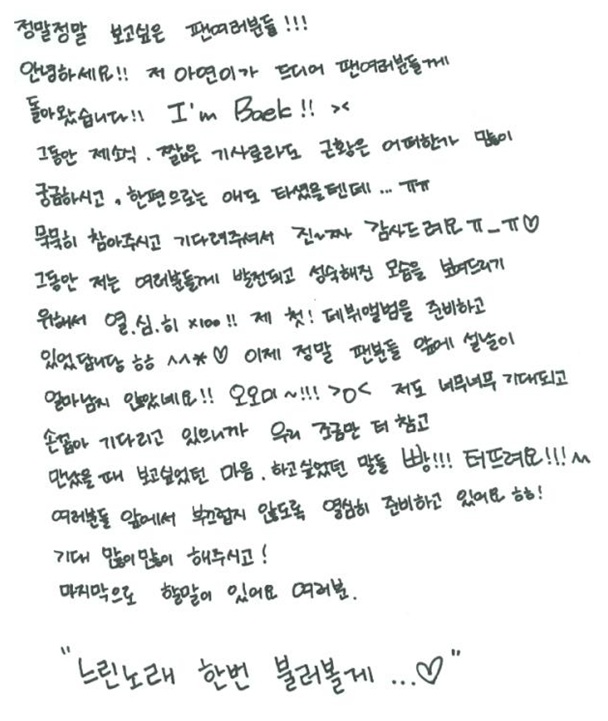 정말정말 보고싶은 팬여러분들!!!
안녕하세요!! 저 아연이가 드디어 팬여러분들께
돌아왔습니다!! I'm Baek!! ><
그동안 제소식. 짧은 기사로라도 근황은 어떠한가 많이
궁금하시고, 한편으로는 애도 타셨을텐데... ㅠㅠ
묵묵히 참아주시고 기다려주셔서 진~짜 감사드려요 ㅠ_ㅠ♡
그동안 저는 여러분들께 발전되고 성숙해진 모습을 보여드리기
위해서 열.심.히 x100!! 제 첫! 데뷔앨범을 준비하고
있었답니당 ㅎㅎ ^^*♡ 이제 정말 팬분들 앞에 설날이
얼마남지 않았네요!! 오오미~!!! >O< 저도 너무너무 기대되고
손꼽아 기다리고 있으니까 우리 조금만 더 참고
만났을 때 보고싶었던 마음. 하고싶었던 말들 빵!!! 터뜨려요!!! ^^
여러분들 앞에서 부끄럽지 않도록 열심히 준비하고 있어요 ㅎㅎ!
기대 많이많이 해주시고!
마지막으로 할말이 있어요 여러분.
"느린노래 한번 불러볼게 ...♡"